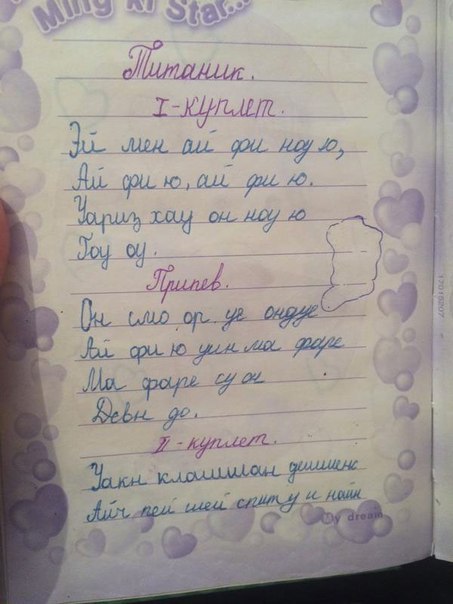 Ming xi Star...
Титаник.
I-куплет.
Эй мен ай фи ноу ю,
Ай фи ю, ай фи ю.
Уариз хау он ноу ю
Гоу оу.
Припев.
Он смо ор уе ондуе
Ай фи ю уин ма фаре
Ма фаре су он
Девн до.
II-куплет.
Уакн клашшан дишшенс
Айч пей шей спиту и найн
My dream
17016207